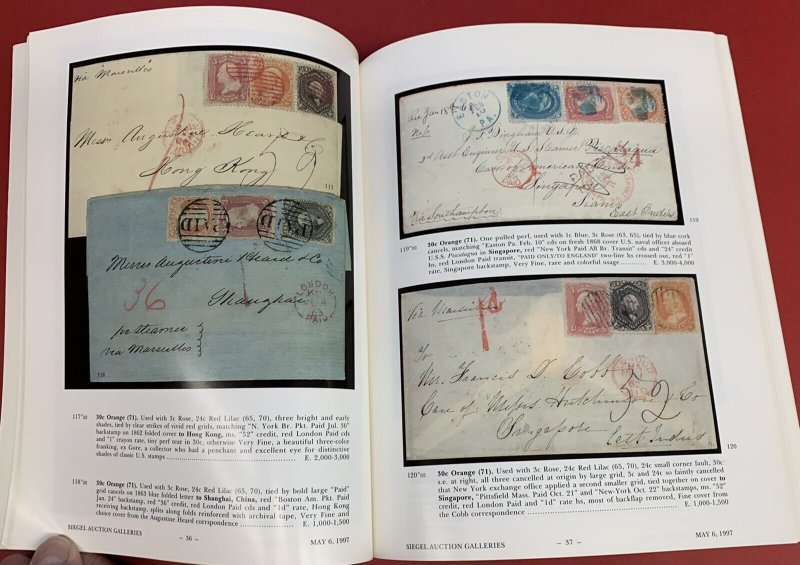 via Marseilles
Messrs Augustine Heard & Co.
Hong Kong
117
PAID
PAID
Messrs Augustine Heard & Co
Shanghai
36
LONDON
PAID
pr steamer
via Marseilles
118
117°⊞ 30c Orange (71). Used with 3c Rose, 24c Red Lilac (65, 70), three bright and early
shades, tied by clear strikes of vivid red grids, matching "N. York Br. Pkt. Paid Jul. 30"
backstamp on 1862 folded cover to Hong Kong, ms. "52" credit, red London Paid cds
and "1" crayon rate, tiny perf tear in 30c, otherwise Very Fine, a beautiful three-color
franking, ex Gore, a collector who had a penchant and excellent eye for distinctive
shades of classic U.S. stamps E. 2,000-3,000
118°⊞ 30c Orange (71). Used with 3c Rose, 24c Red Lilac (65, 70), tied by bold large "Paid"
grid cancels on 1863 blue folded letter to Shanghai, China, red "Boston Am. Pkt. Paid
Jan. 24" backstamp, red "36" credit, red London Paid cds and "1d" rate, Hong Kong
receiving backstamp, splain along folds reinforced with archival tape, Very Fine and
choice cover from the Augustine Heard correspondence E. 1,000-1,500
– 36 –
SIEGEL AUCTION GALLERIES
MAY 6, 1997
EASTON
PA.
FEB
J. F. Bingham U.S.N.
2nd Asst Engineer U.S. Steamer Piscataqua
Care of American Consul
Singapore
Siam
East Indies
via Southampton
119
119°⊞ 30c Orange (71). One pulled perf, used with 1c Blue, 3c Rose (63, 65), tied by blue cork
cancels, matching "Easton Pa. Feb. 10" cds on fresh 1868 cover to U.S. naval officer aboard
U.S.S. Piscatagua in Singapore, red "New York Paid All Br. Transit" cds and "24" credit
hs, red London Paid transit, "PAID ONLY/TO ENGLAND" two-line hs crossed out, red "1"
rate, Singapore backstamp, Very Fine, rare and colorful usage E. 3,000-4,000
via Marseilles
To
Mr. Francis D. Cobb
52
Care of Messrs Hutchinson & Co
Singapore
East Indies
120
120°⊞ 30c Orange (71). Used with 3c Rose, 24c Red Lilac (65, 70), 24c small corner fault, 30c
s.e. at right, all three cancelled at origin by large grid, 3c and 24c so faintly cancelled
that New York exchange office applied a second smaller grid, tied together on cover to
Singapore, "Pittsfield Mass. Paid Oct. 21" and "New-York Oct. 22" backstamps, ms. "52"
credit, red London Paid and "1d" rate hs, most of backflap removed, Fine cover from
the Cobb correspondence E. 1,000-1,500
– 37 –
SIEGEL AUCTION GALLERIES
MAY 6, 1997